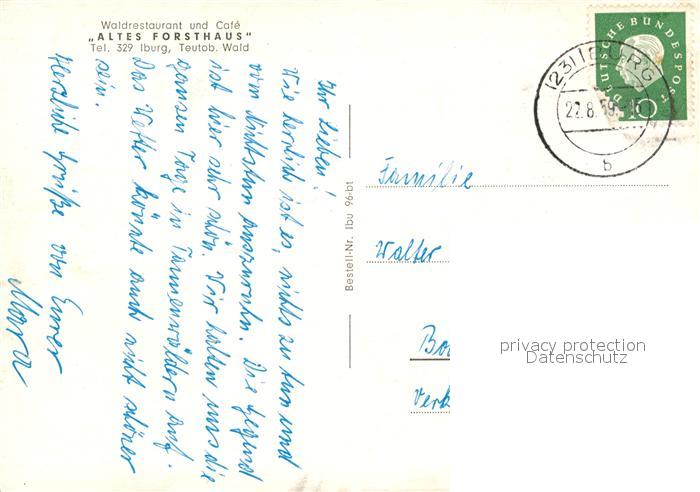 Waldrestaurant und Café
„ALTES FORSTHAUS"
Tel. 329 Iburg, Teutob. Wald
Ihr Lieben!
Wie herrlich ist es, nichts zu tun und
vom Nichtstun auszuruhn. Die Gegend
ist hier sehr schön. Wir halten uns die
ganzen Tage in Tannenwäldern auf.
Das Wetter könnte auch nicht schöner
sein.
Herzliche Grüße von Eurer
Bestell-Nr. Ibu 96-bt
DEUTSCHE BUNDESPOST
10
(23) IBURG
22.8.59.-16
b
Familie
Walter
privacy protection
Datenschutz